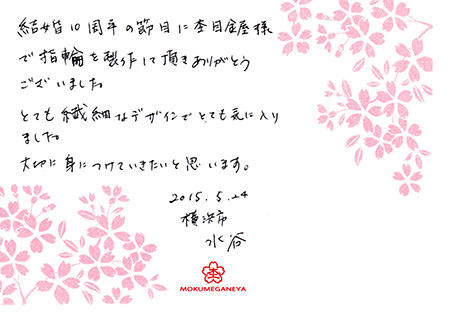 結婚10周年の節目に杢目金屋様
で指輪を製作して頂きありがとう
ございました。
とても繊細なデザインでとても気に入り
ました。
大切に身につけていきたいと思います。
2015.5.24
横浜市
水谷
MOKUMEGANEYA